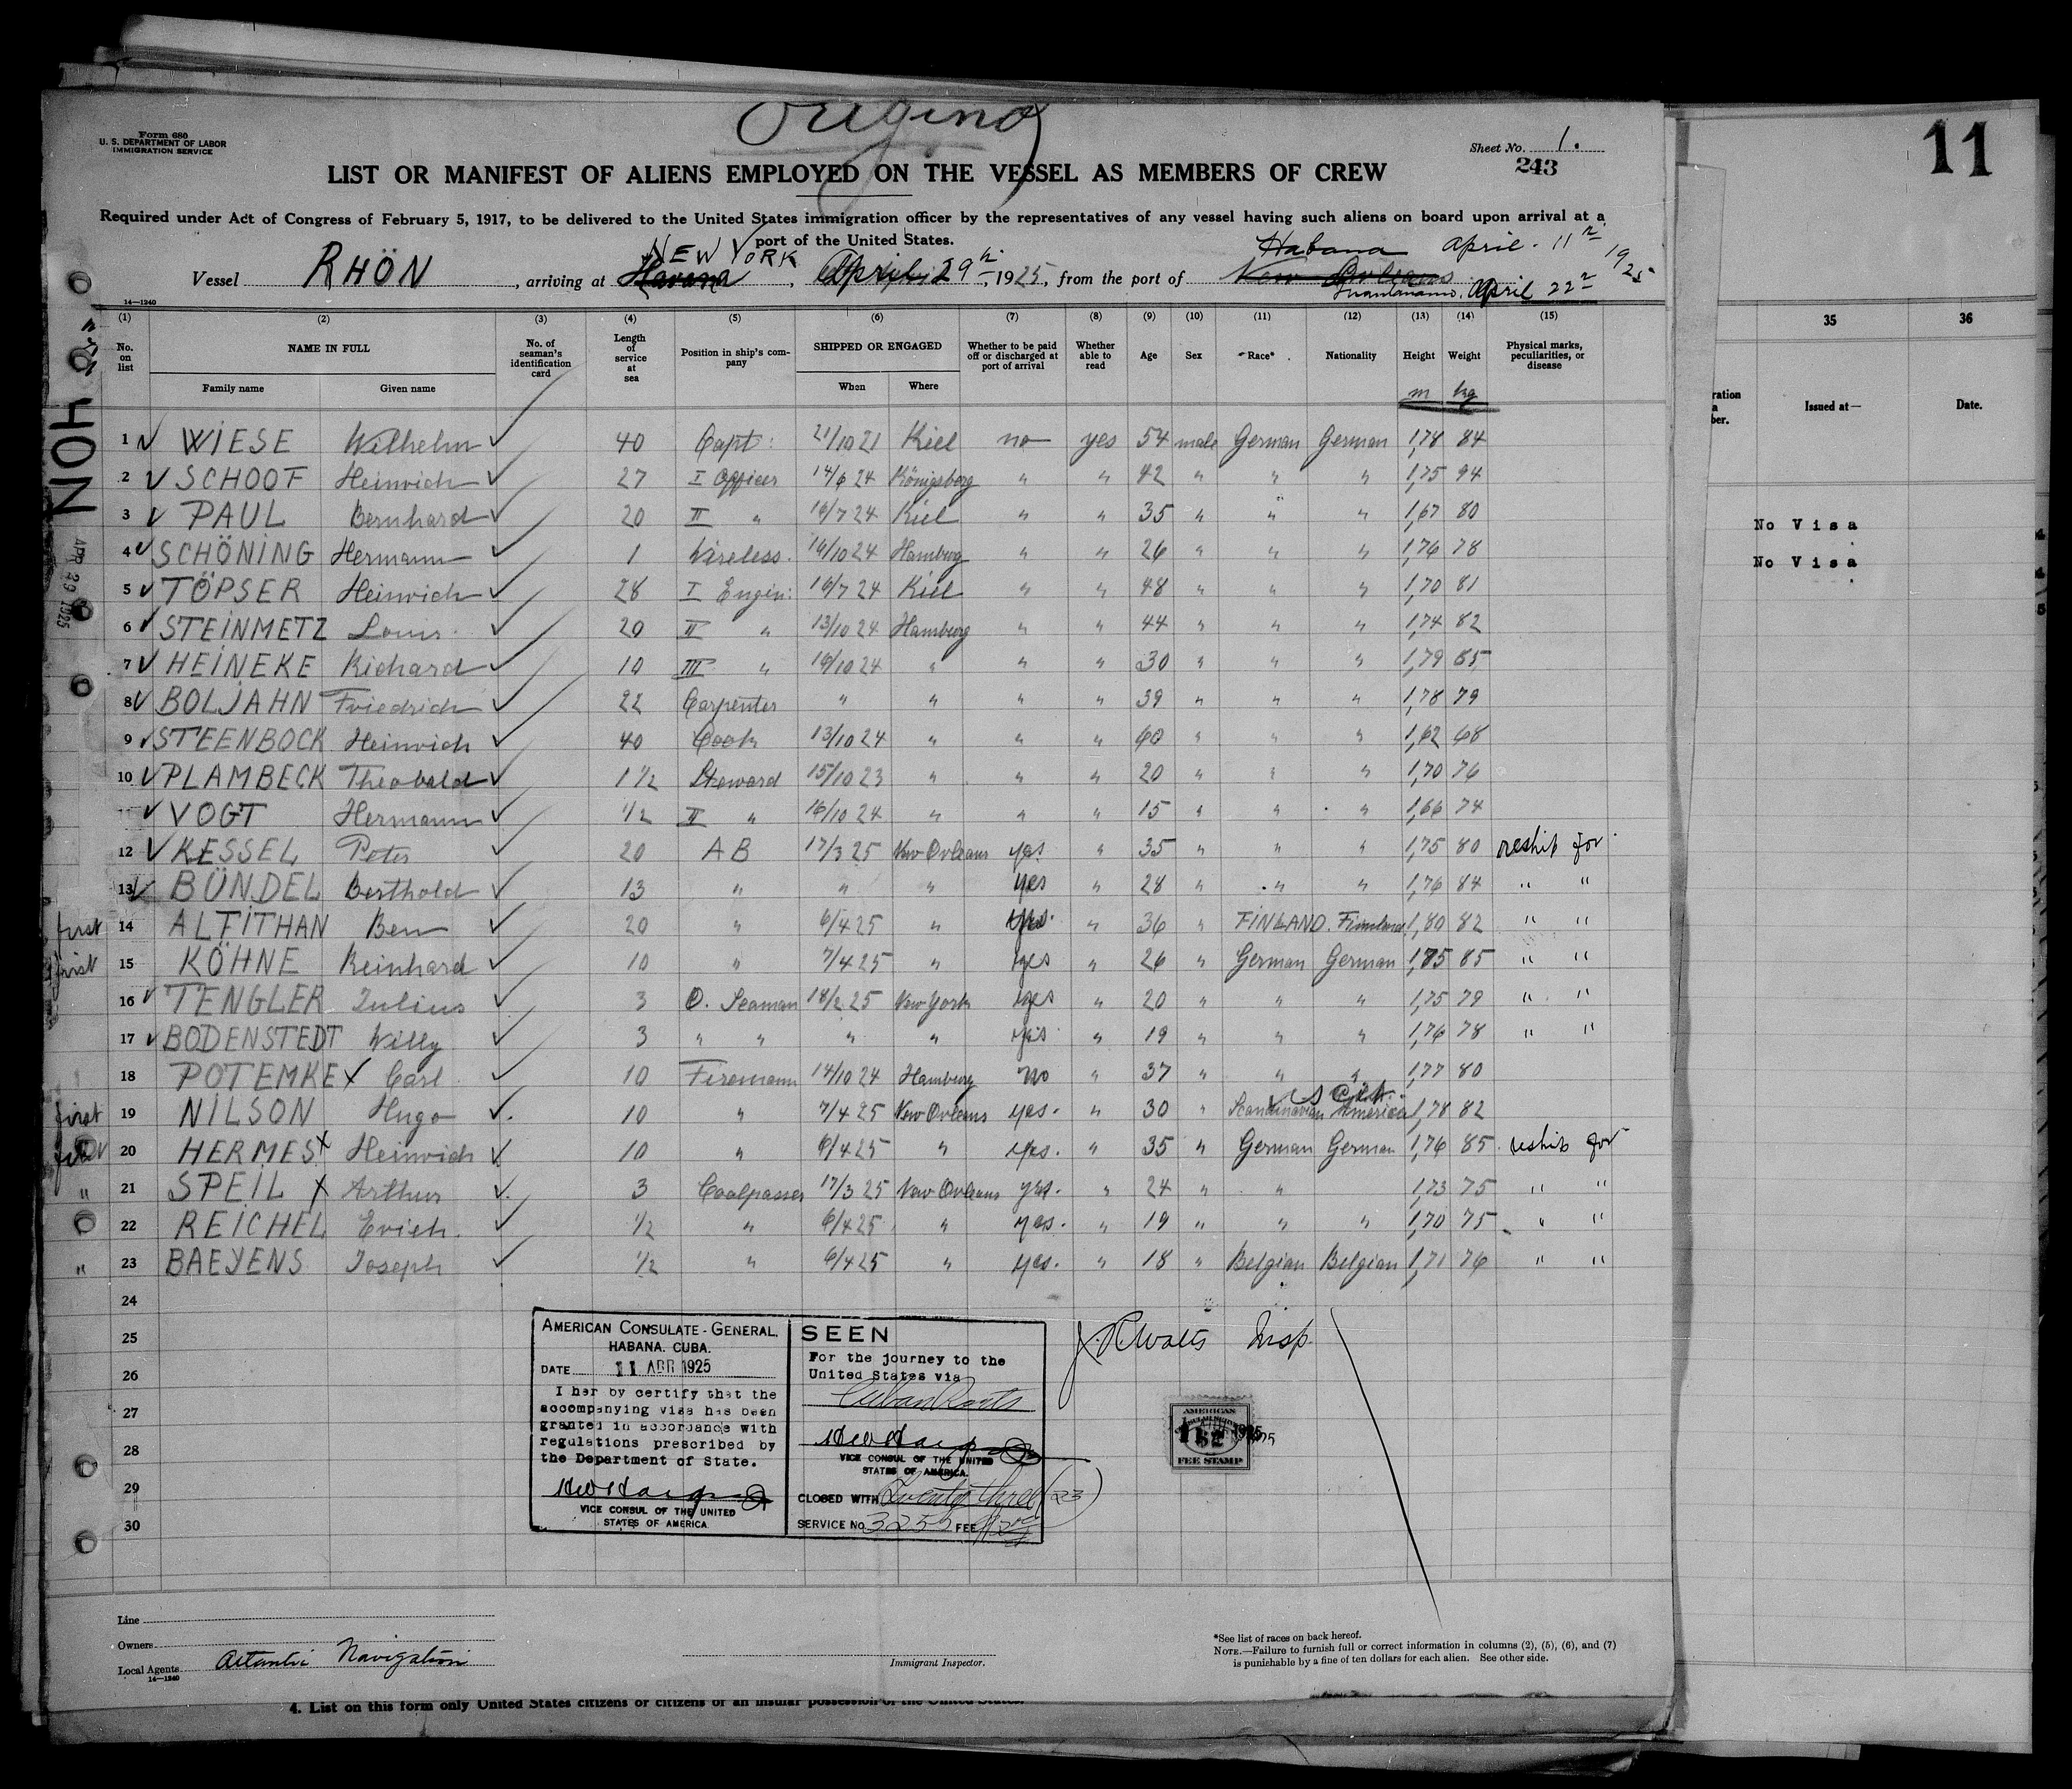 Original
Form 680
U. S. DEPARTMENT OF LABOR
IMMIGRATION SERVICE
Sheet No. 1.
243
11
LIST OR MANIFEST OF ALIENS EMPLOYED ON THE VESSEL AS MEMBERS OF CREW
Required under Act of Congress of February 5, 1917, to be delivered to the United States immigration officer by the representatives of any vessel having such aliens on board upon arrival at a
port of the United States.
NEW YORK Habana April. 11th 1925
Vessel RHÖN, arriving at Havana, April 29th, 1925, from the port of New Orleans
Guantanamo. April 22n
14-1240
(1) (2) (3) (4) (5) (6) (7) (8) (9) (10) (11) (12) (13) (14) (15)
No. on list NAME IN FULL Family name Given name No. of seaman's identification card Length of service at sea Position in ship's company SHIPPED OR ENGAGED When Where Whether to be paid off or discharged at port of arrival Whether able to read Age Sex Race* Nationality Height Weight Physical marks, peculiarities, or disease
m kg
35 36
Issued at— Date.
1 WIESE Wilhelm 40 Capt: 21/10 21 Kiel no yes 54 male German German 1,78 84
2 SCHOOF Heinrich 27 I Officer 14/6 24 Königsberg " " 42 " " " 1,75 94
3 PAUL Bernhard 20 II " 16/7 24 Kiel " " 35 " " " 1,67 80
4 SCHÖNING Hermann 1 Wireless. 16/10 24 Hamburg " " 26 " " " 1,76 78
5 TÖPSER Heinrich 28 I Engin: 16/7 24 Kiel " " 48 " " " 1,70 81
6 STEINMETZ Louis. 20 II " 13/10 24 Hamburg " " 44 " " " 1,74 82
7 HEINEKE Richard 10 III " 16/10 24 " " " 30 " " " 1,79 85
8 BOLJAHN Friedrich 22 Carpenter " " " " 39 " " " 1,78 79
9 STEENBOCK Heinrich 40 Cook 13/10 24 " " " 60 " " " 1,62 68
10 PLAMBECK Theobald 1 1/2 Steward 15/10 23 " " " 20 " " " 1,70 76
11 VOGT Hermann 1/2 II " 16/10 24 " " " 15 " " " 1,66 74
12 KESSEL Peter 20 AB 17/3 25 New Orleans yes " 35 " " " 1,75 80 reship for
13 BÜNDEL Berthold 13 " " " yes " 28 " " " 1,76 84 " "
first 14 ALTITHAN Ben 20 " 6/4 25 " yes. " 36 " FINLAND. Finnland 1,80 82 " "
first 15 KÖHNE Reinhard 10 " 7/4 25 " yes " 26 " German German 1,75 85 " "
16 TENGLER Julius 3 O. Seaman 18/2 25 New York yes " 20 " " " 1,75 79 " "
17 BODENSTEDT Willy 3 " " " " yes " 19 " " " 1,76 78 " "
18 POTEMKE x Carl 10 Firemann 14/10 24 Hamburg no " 37 " " " 1,77 80
US Cit.
first 19 NILSON Hugo 10 " 7/4 25 New Orleans yes. " 30 " Scandinavian America 1,78 82
20 HERMES x Heinrich 10 " 6/4 25 " yes. " 35 " German German 1,76 85 reship for
" 21 SPEIL x Arthur 3 Coalpasser 17/3 25 New Orleans yes. " 24 " " 1,73 75 " "
22 REICHEL Erich. 1/2 " 6/4 25 " yes. " 19 " " " 1,70 75 " "
" 23 BAEYENS Joseph 1/2 " 6/4 25 " yes. " 18 " Belgian Belgian 1,71 76 " "
24
25
26
27
28
29
30
No Visa
No Visa
RHÖN
APR 29 1925
AMERICAN CONSULATE-GENERAL,
HABANA. CUBA.
DATE 11 ABR 1925
I her by certify that the
accompanying visa has been
granted in accordance with
regulations prescribed by
the Department of State.
VICE CONSUL OF THE UNITED
STATES OF AMERICA.
SEEN
For the journey to the
United States via
Cuban Ports
VICE CONSUL OF THE UNITED
STATES OF AMERICA.
CLOSED WITH Twenty three (23)
SERVICE No. 3255 FEE
Insp.
AMERICAN
FEE STAMP
Line
Owners
Local Agents Atlantic Navigation
14-1240
Immigrant Inspector.
*See list of races on back hereof.
NOTE.—Failure to furnish full or correct information in columns (2), (5), (6), and (7)
is punishable by a fine of ten dollars for each alien. See other side.
4. List on this form only United States citizens or citizens of an insular possession of the United States.